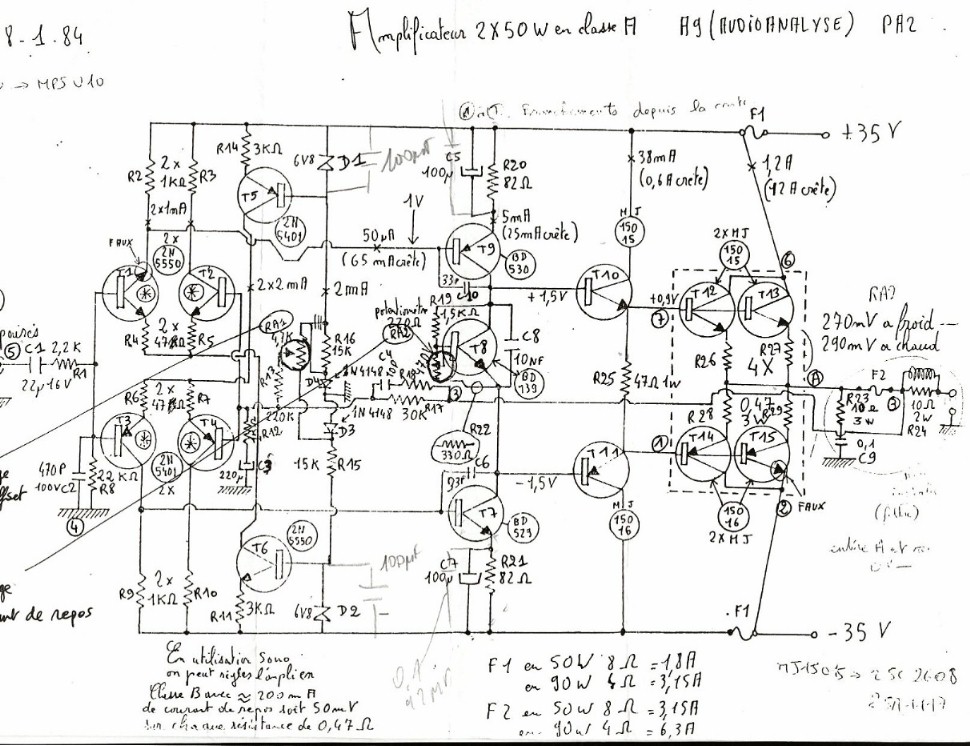 8.1.84
Amplificateur 2X50W en classe A   A9 (AUDIOANALYSE)   PA2
→ MPS U10
depuis la
F1
+35 V
R14 3KΩ
6V8 D1
100µF
C5 100µ
R20 82Ω
38mA
(0,6A crète)
1,2A
(12A crète)
R2 2x 1KΩ R3
2x1mA
T5
2N 5401
1V
5mA
(25mA crète)
MJ 150 15
2xMJ 150 15
FAUX
2x 2N 5550
50µA
(65 mA crète)
T9
BD 530
6
T1
T2
2x2mA
2mA
33p C10
+1,5V
T10
+0,9V
7
T12
T13
RA2
270mV a froid
290mV a chaud
RA1
4,7K
R16 15K
potentiometre
220Ω
RA2
R19 1,5KΩ
T8
C8
10NF
BD 139
R4 2x 47Ω R5
R26
R27
4X
A
5
C1
2,2K
R1
22µ 16V
R13
D4
1N4148
C4
R18
3
R25 47Ω 1W
F2
3
R6 2x 47Ω R7
220K
R12
1N4148
30K
R17
R28 0,47 3W R29
R23 10Ω 3W
10Ω 2W
R24
0,1
C9
T3
T4
D3
R22
330Ω
1
T14
T15
470P
100V C2
22 KΩ
R8
2N 5401 2x
220µ
C3
15K
R15
C6
33p
-1,5V
T11
4
T7
BD 529
MJ 150 16
150 16
2X MJ
2
FAUX
T6
2N 5550
C7
100µ
R21
82Ω
100µF
R9 2x 1KΩ R10
R11 3KΩ
6V8 D2
F1
-35 V
de repos
En utilisation sono
on peut régler l'ampli en
Classe B avec ≈ 200mA
de courant de repos soit 50mV
sur chaque résistance de 0,47Ω
0,1
F1 en 50W 8Ω = 1,8A
en 90W 4Ω = 3,15A
F2 en 50W 8Ω = 3,15A
en 90W 4Ω = 6,3A
MJ15015 → 2SC 2608
2SA 1117